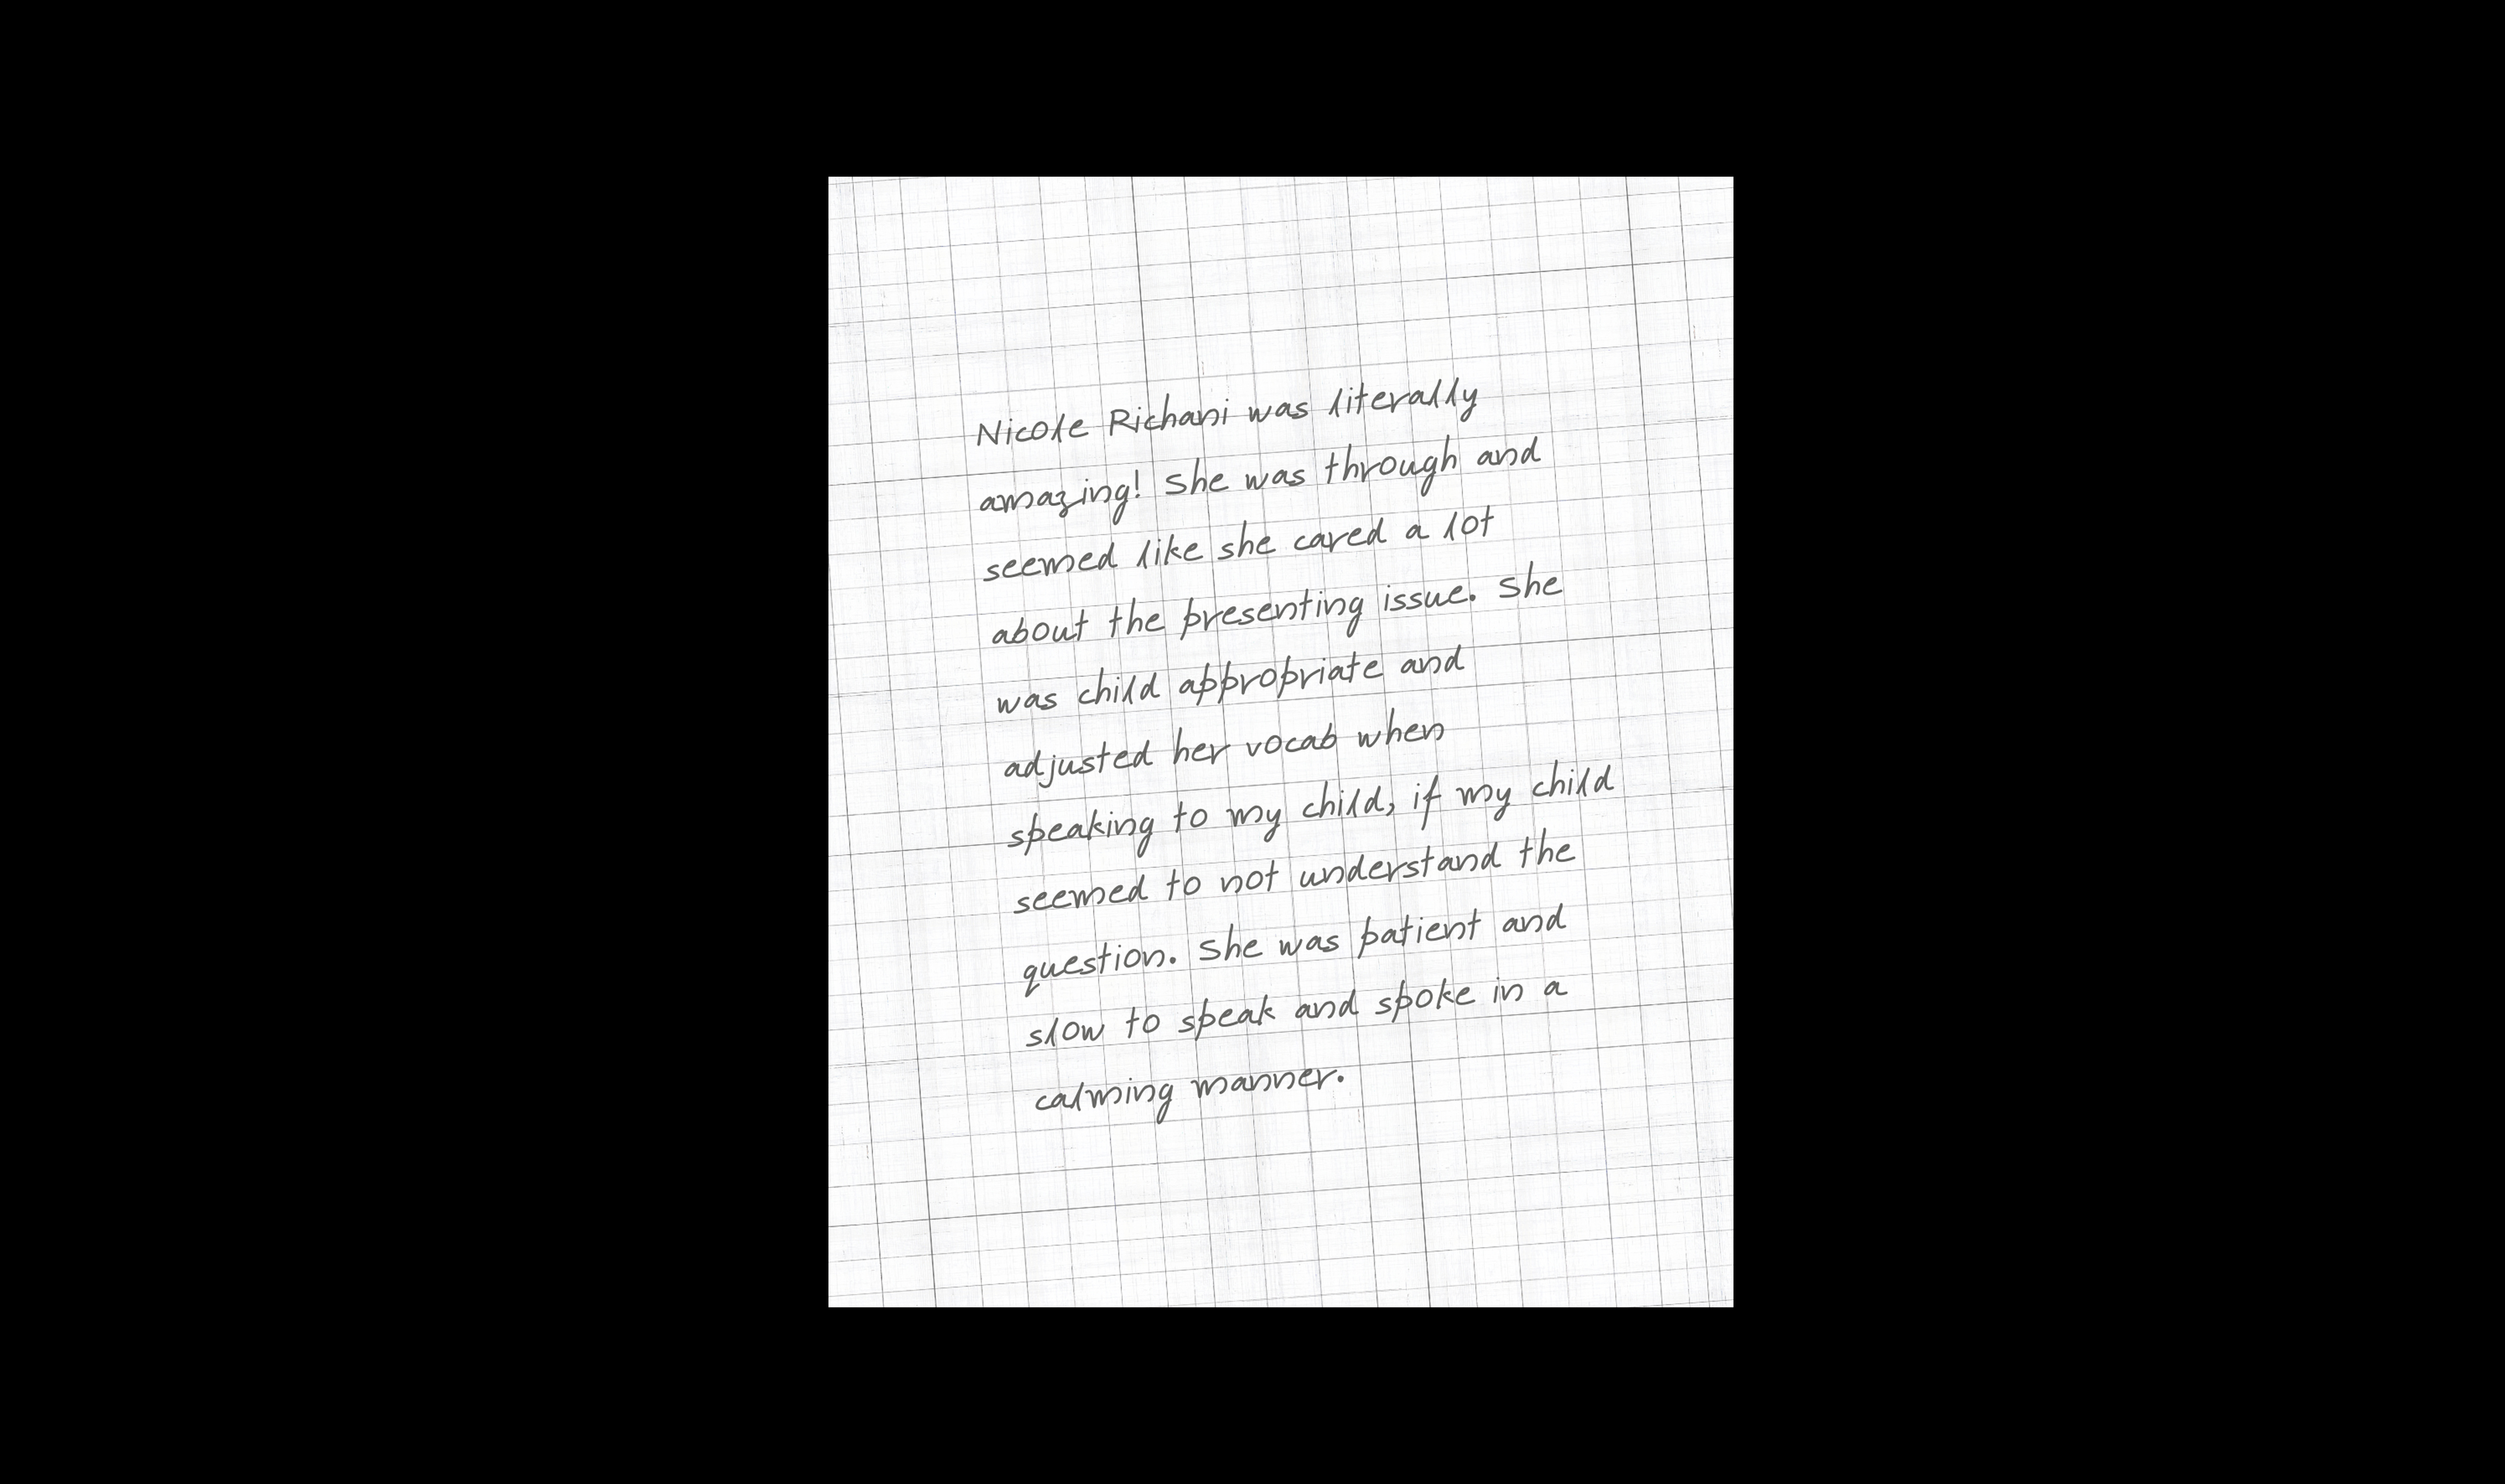 Nicole Richani was literally
amazing! She was through and
seemed like she cared a lot
about the presenting issue. She
was child appropriate and
adjusted her vocab when
speaking to my child, if my child
seemed to not understand the
question. She was patient and
slow to speak and spoke in a
calming manner.